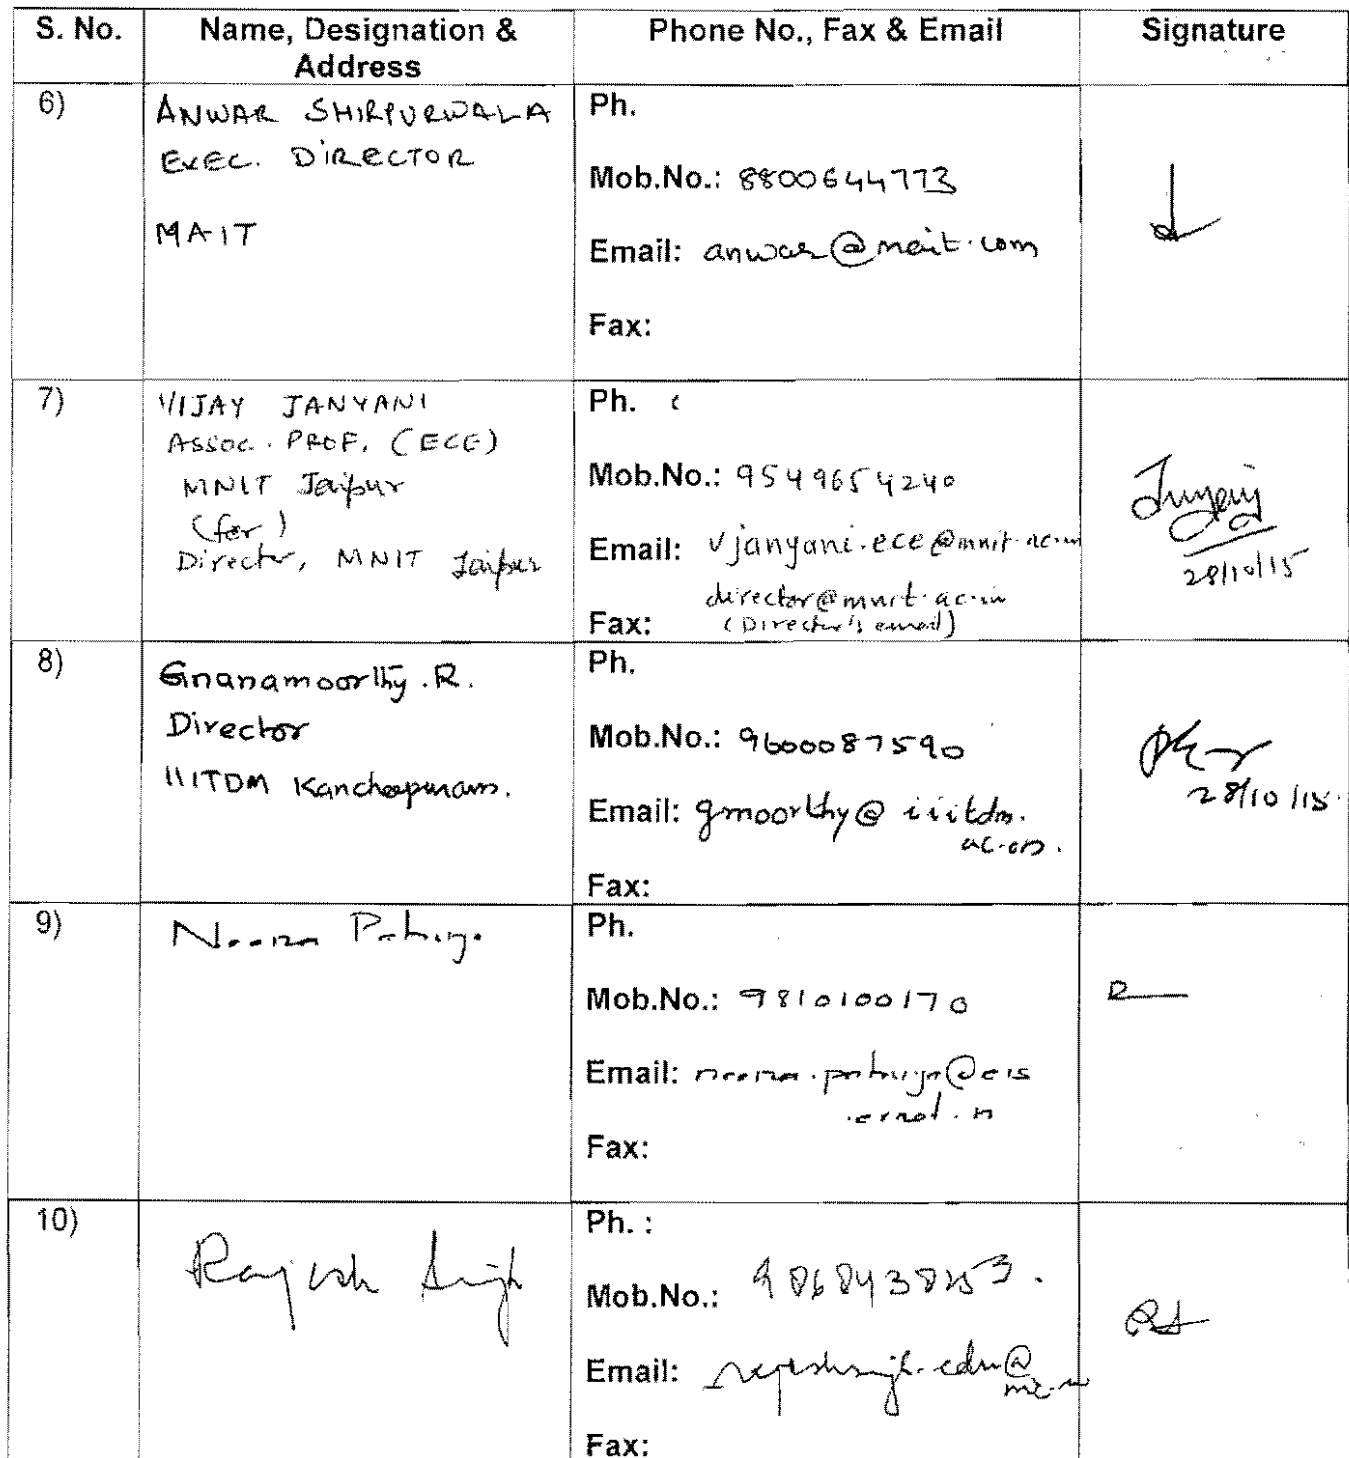 S. No. Name, Designation & Address Phone No., Fax & Email Signature
6)
ANWAR SHIRPURWALA
EXEC. DIRECTOR
MAIT
Ph.
Mob.No.: 8800644773
Email: anwar@mait.com
Fax:
7)
VIJAY JANYANI
ASSOC. PROF. (ECE)
MNIT Jaipur
(for)
Director, MNIT Jaipur
Ph.
Mob.No.: 9549654240
Email: vjanyani.ece@mnit.ac.in
director@mnit.ac.in
Fax: (Director's email)
28/10/15
8)
Gnanamoorthy.R.
Director
IIITDM Kancheepuram.
Ph.
Mob.No.: 9600087590
Email: gmoorthy@iiitdm.
ac.in.
Fax:
28/10/15.
9)
Neena Pahuja
Ph.
Mob.No.: 9810100170
Email: neena.pahuja@eis
.ernet.in
Fax:
10)
Rajesh Singh
Ph. :
Mob.No.: 9868438253.
Email:
Fax:
RS